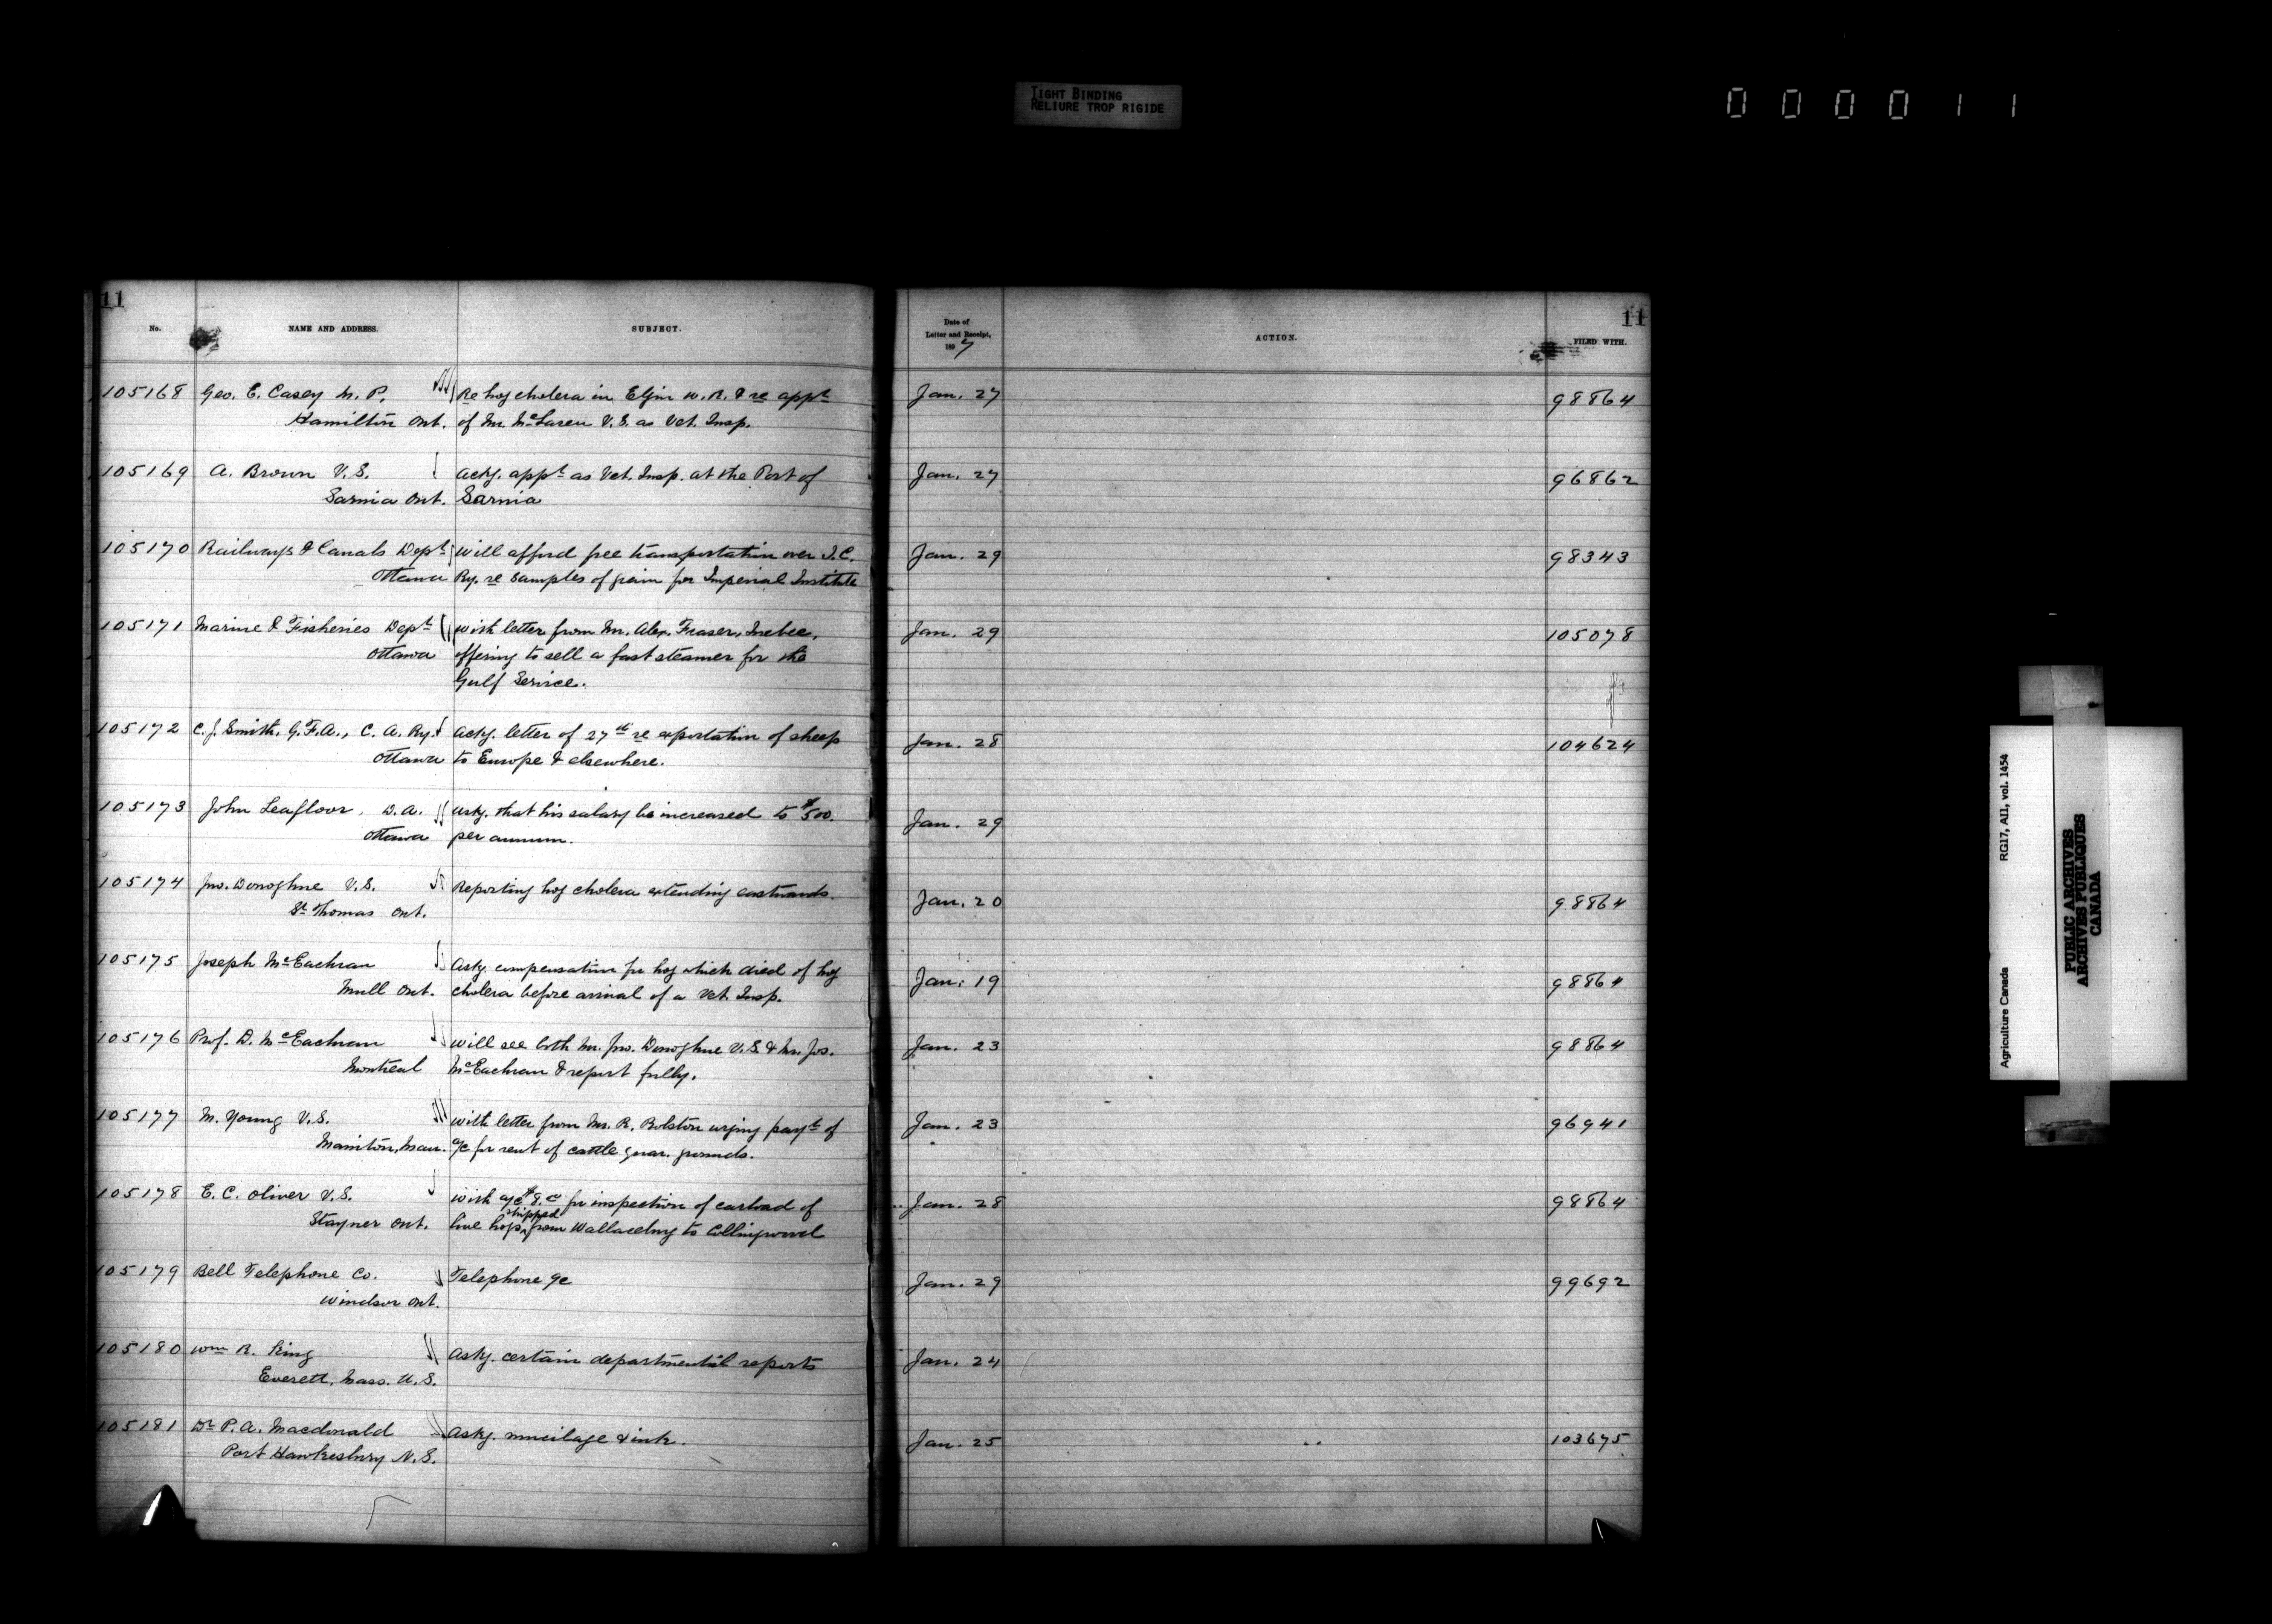 TIGHT BINDING
RELIURE TROP RIGIDE
000011
11
No.
NAME AND ADDRESS.
SUBJECT.
Date of
Letter and Receipt,
1897
ACTION.
FILED WITH.
11
105168 Geo. E. Casey M. P. Re hog cholera in Elgin W. R. & re appt Jan. 27 98864
Hamilton Ont. of Mr. McLaren V. S. as Vet. Insp.
105169 A. Brown V. S. Ackg. appt as Vet. Insp. at the Port of Jan. 27 96862
Sarnia Ont. Sarnia
105170 Railways & Canals Dept Will afford free transportation over I. C. Jan. 29 98343
Ottawa Ry. re samples of grain for Imperial Institute
105171 Marine & Fisheries Dept With letter from Mr. Alex. Fraser, Quebec, Jan. 29 105078
Ottawa offering to sell a fast steamer for the
Gulf Service.
105172 C. J. Smith, G. F. A., C. A. Ry. Ackg. letter of 27th re exportation of sheep Jan. 28 104624
Ottawa to Europe & elsewhere.
105173 John Leafloor, D. A. Askg. that his salary be increased to $500. Jan. 29
Ottawa per annum.
105174 Jno. Donoghue V. S. Reporting hog cholera extending eastwards. Jan. 20 98864
St Thomas Ont.
105175 Joseph McEachran Askg. compensation for hog which died of hog Jan. 19 98864
Mull Ont. cholera before arrival of a Vet. Insp.
105176 Prof. D. McEachran Will see both Mr. Jno. Donoghue V. S. & Mr. Jos. Jan. 23 98864
Montreal McEachran & report fully.
105177 M. Young V. S. With letter from Mr. R. Rolston urging payt of Jan. 23 96941
Manitou, Man. a/c for rent of cattle quar. grounds.
105178 E. C. Oliver V. S. With a/c $8.00 for inspection of carload of Jan. 28 98864
Stayner Ont. live hogs shipped from Wallaceburg to Collingwood
105179 Bell Telephone Co. Telephone a/c Jan. 29 99692
Windsor Ont.
105180 Wm R. King Askg. certain departmental reports Jan. 24
Everett, Mass. U. S.
105181 Dr P. A. Macdonald Askg. mucilage & ink. Jan. 25 103675
Port Hawkesbury N. S.
Agriculture Canada RG17, AII, vol. 1454
PUBLIC ARCHIVES
ARCHIVES PUBLIQUES
CANADA